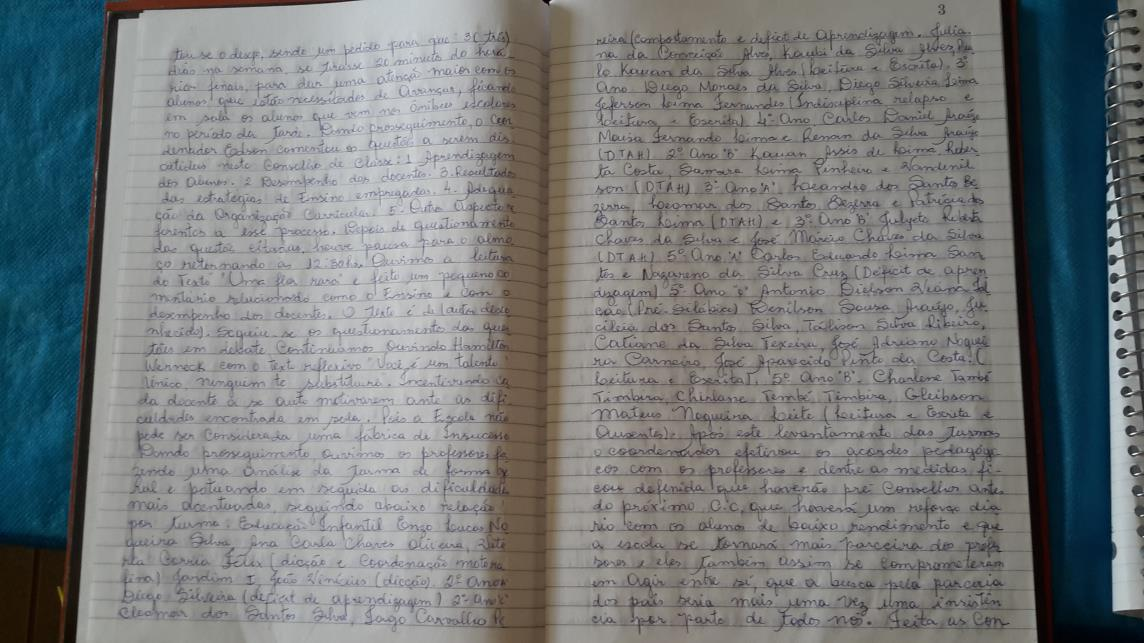 teu se o desp, sendo um pedido para que: 3 (três)
dias na semana, se tirasse 20 minutos do horá
rios finais, para dar uma atenção maior com os
alunos que estão necessitados de avançar, ficando
em sala os alunos que vem nos ônibus escolares
no período da tarde. Dando prosseguimento, o Coor
denador Edson comentou os questões a serem dis
cutidas neste Conselho de Classe: 1 Aprendizagem
dos Alunos. 2 Desempenho dos docentes. 3. Resultados
das estratégias de Ensino empregadas. 4. Adequa
ção da Organização Curricular. 5. Outro aspecto re
ferentes a esse processo. Depois de questionamento
das questões citadas, houve pausa para o almo
ço retornando as 12:30hs. Ouvimos a leitura
do Texto "Uma flor rara" e feito um pequeno co
mentário relacionado como o Ensino e com o
desempenho dos docentes. O texto é de (autor desco
nhecido). Seguiu-se os questionamento das ques
tões em debate. Continuamos Ouvindo Hamilton
Werneck com o Texto reflexivo "Você é um talento
Único, ninguem te substituirá. Incentivando ca
da docente à se auto motivarem ante as difi
culdades encontrada em sala. Pois a Escola não
pode ser Considerada uma fábrica de Insucesso
Dando prosseguimento ouvimos os professores fa
zendo uma Análise da Turma de forma ge
ral e potuando em seguida as dificuldades
mais acentuadas, seguindo abaixo relação
por turma: Educação Infantil Enzo Lucas No
gueira Silva, Ana Carla Chaves Oliveira,
Correia Félix (dicção e Coordenação motora
fina) Jardim I João Vinícius (dicção). 2º Ano
Diego Silveira (deficit de aprendizagem) 2º Ano
Cleomar dos Santos Silva, Iago Carvalho Pe
3
reira (Comportamento e deficit de Aprendizagem. Julia
na da Conceição Alves, Kauebi da Silva Alvez, Pau
lo Kauan da Silva Alves (Leitura e Escrita). 3º
Ano Diego Moraes da Silva, Diego Silveira Lima
Jeferson Lima Fernandes (Indisciplina relapso e
Leitura e Escrita) 4º Ano, Carlos Daniel Araújo
Mousa Fernando Lima e Renan da Silva Araújo
(DTAH) 2º Ano "B" Kauan Assis de Lima Rober
ta Costa, Samara Lima Pinheiro e Vandenil
son (DTAH) 3º Ano "A", Leandro dos Santos Be
zerra, Leomar dos Santos Bezerra e Patricia dos
Santos Lima (DTAH) e 3º Ano "B" Roberta
Chaves da Silva e José Marcio Chaves da Silva
(DTAH) 5º Ano "A" Carlos Eduardo Lima San
tos e Nazareno da Silva Cruz (Deficit de apren
dizagem) 5º Ano Antonio
(Pré-Silábica) Denilson Sousa Araújo, Ju
cileia dos Santos Silva, Tailison Silva Ribeiro,
Catiane da Silva Texeira, José Adriano Noguei
ra Carneiro, José Aparecido Pinto da Costa. (
Leitura e Escrita). 5º Ano "B". Charlene Tembé
Timbira, Chirlane Tembé Timbira, Gleibson
Mateus Nogueira Leite (Leitura e Escrita e
Ausentes). Após este levantamento das turmas
o coordenador efetivou os acordes pedagógi
cos com os professores e dentre as medidas, fi
cou definida que haverão pré Conselhos antes
do próximo C.C, que haverá um reforço diá
rio com os alunos de baixo rendimento e que
a escola se tornará mais parceira dos profes
sores e eles também assim se comprometeram
em Agir entre sí, que a busca pela parceria
dos pais seria mais uma vez uma insistên
cia por parte de todos nós. Feita as Con